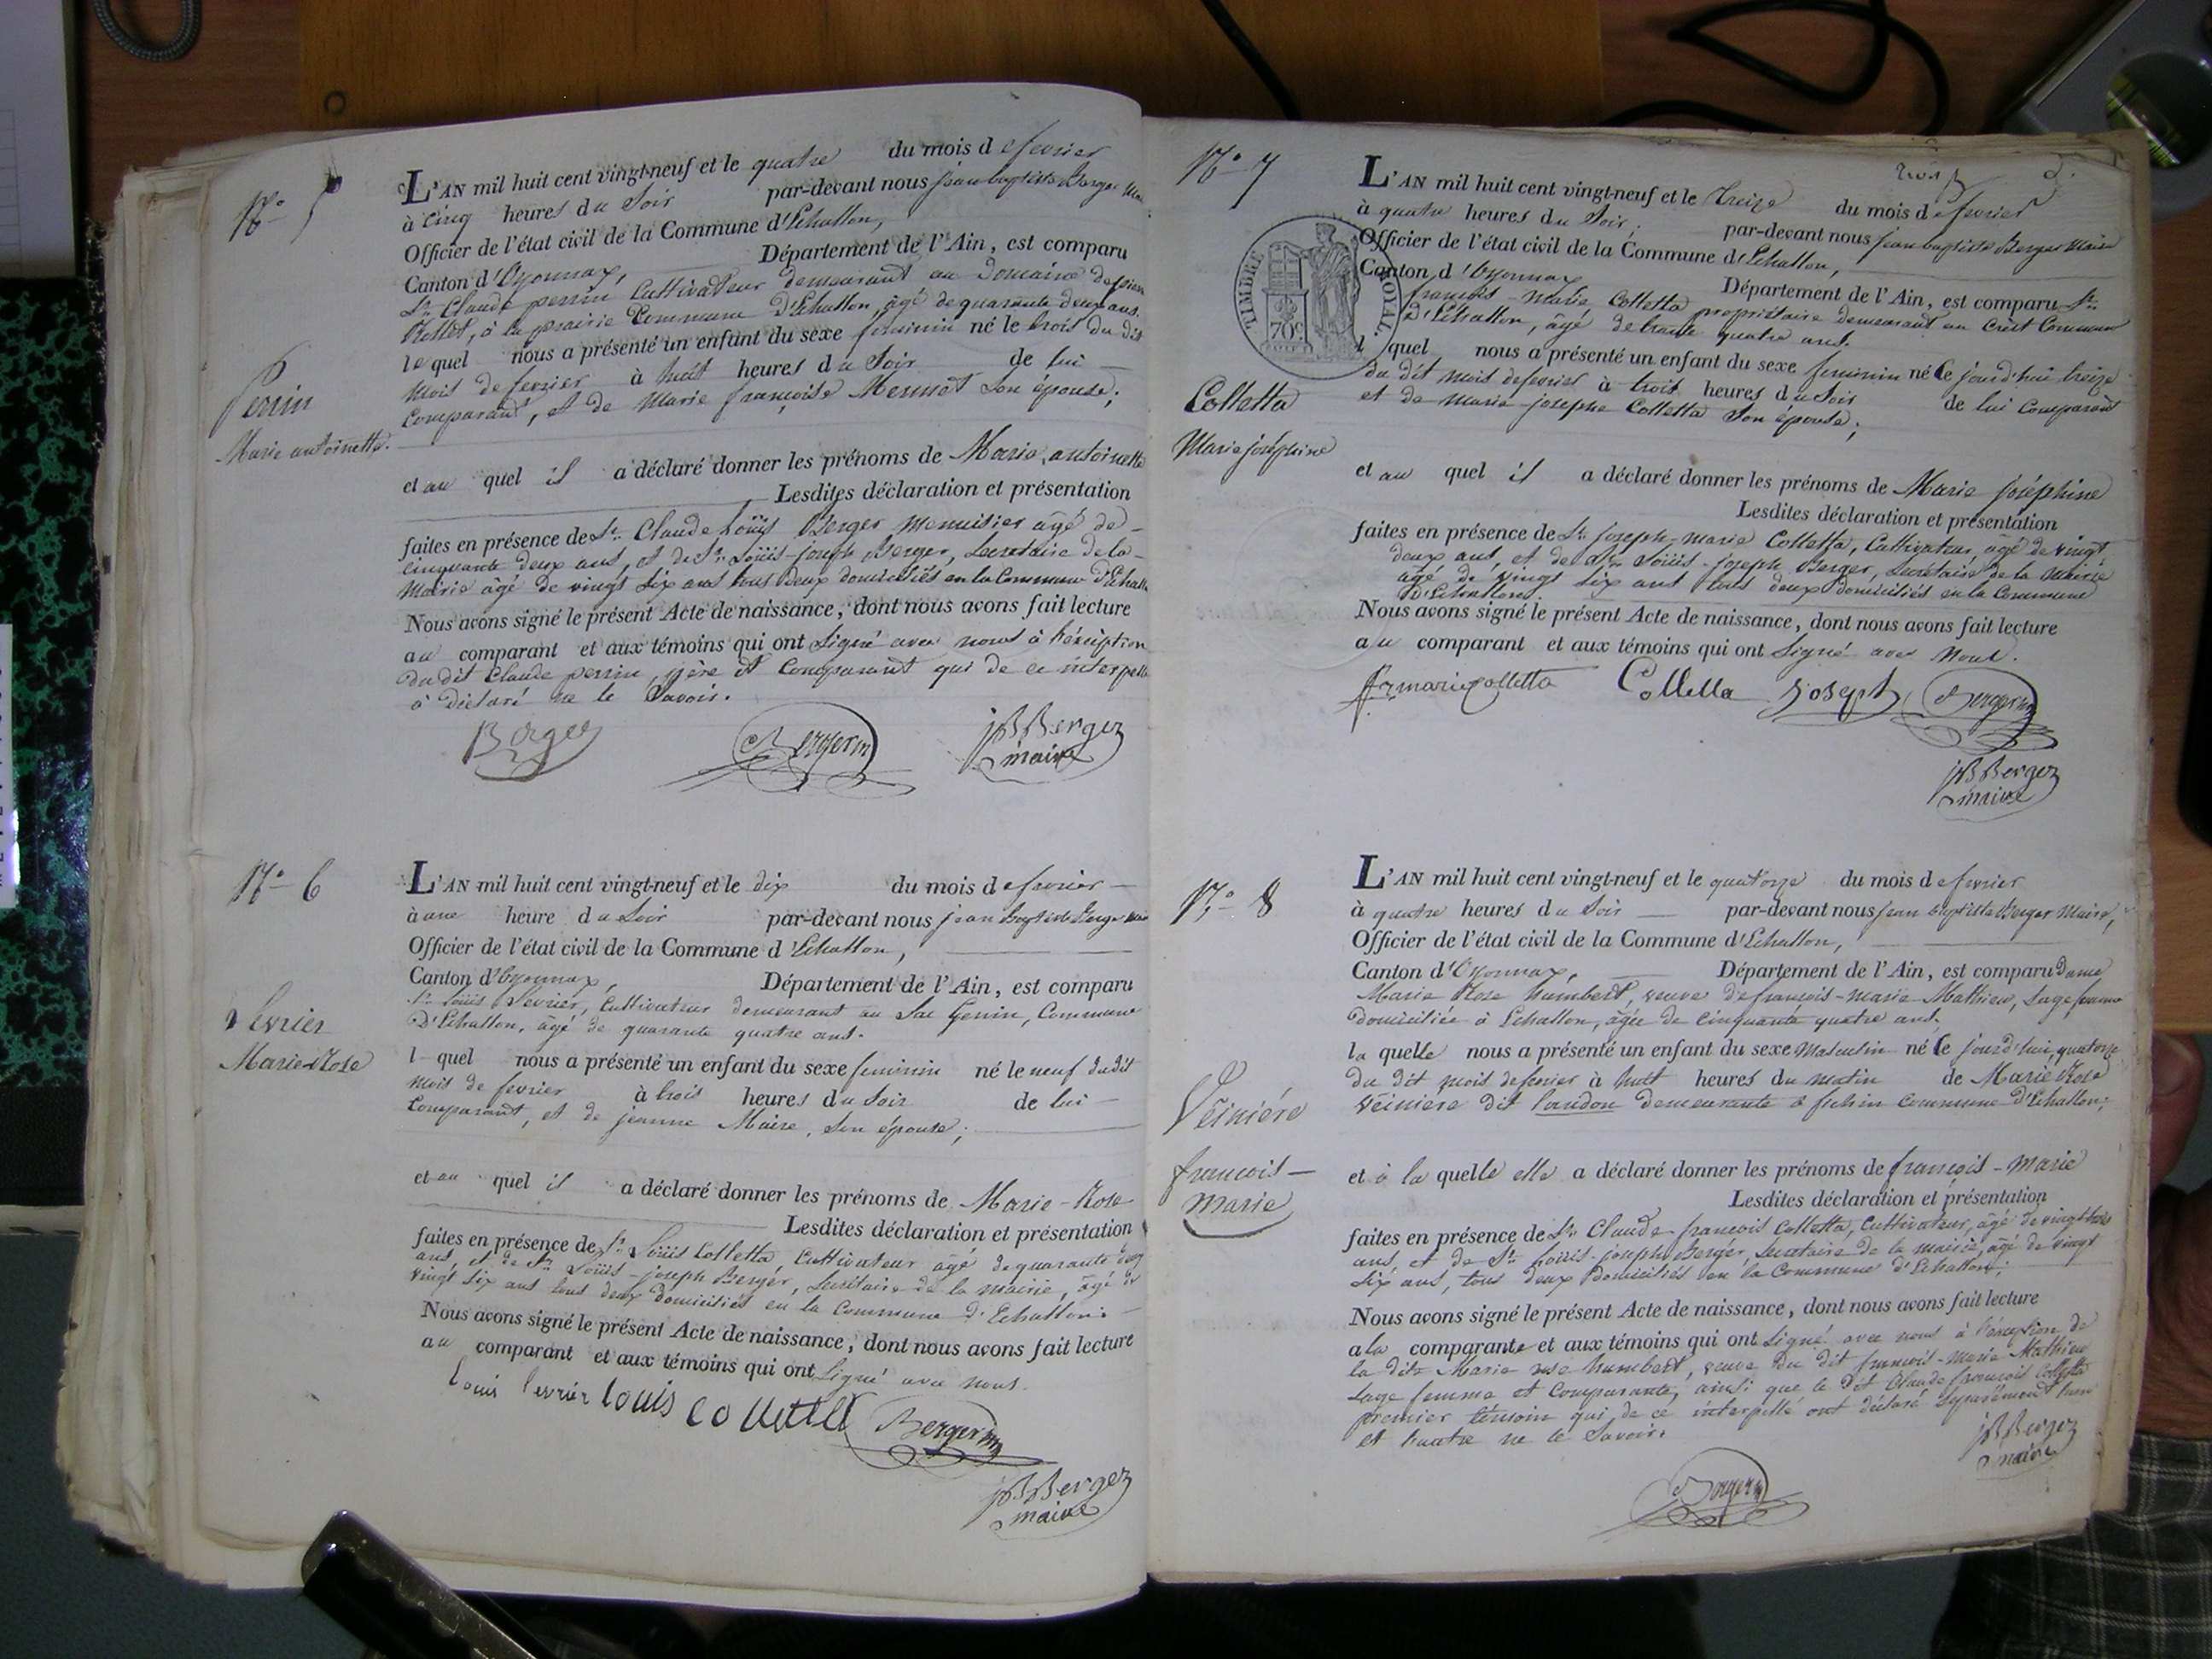 N° 5
L'AN mil huit cent vingt-neuf et le quatre du mois de fevrier
à cinq heures du Soir par-devant nous jean baptiste Berger
Officier de l'état civil de la Commune d'Echallon,
Canton d'Oyonnax, Département de l'Ain, est comparu
Sr. Claude perrin Cultivateur demeurant au Domaine de
Rollet, à la prairie Commune d'Echallon, âgé de quarante deux ans.
lequel nous a présenté un enfant du sexe feminin né le trois du dit
mois de fevrier à huit heures du Soir de lui
Comparant, et de Marie françoise Mermet son épouse;
Perrin
Marie antoinette.
et au quel il a déclaré donner les prénoms de Marie antoinette
Lesdites déclaration et présentation
faites en présence de Sr. Claude Loüis Berger Menuisier âgé de
cinquante deux ans, et de Sr. Loüis-joseph Berger, Secretaire de la
Mairie âgé de vingt six ans tous deux domiciliés en la Commune
Nous avons signé le présent Acte de naissance, dont nous avons fait lecture
au comparant et aux témoins qui ont Signé avec nous à l'éxception
du dit Claude perrin, père et Comparant qui de ce
à déclaré ne le Savoir.
Berger Berger JB Berger
maire
N° 6
L'AN mil huit cent vingt-neuf et le dix du mois de fevrier
à une heure du Soir par-devant nous jean baptiste Berger
Officier de l'état civil de la Commune d'Echallon,
Canton d'Oyonnax, Département de l'Ain, est comparu
Sr. Loüis Levrier, Cultivateur demeurant au Genin, Commune
d'Echallon, âgé de quarante quatre ans.
Levrier
Marie-Rose
l quel nous a présenté un enfant du sexe feminin né le neuf du dit
mois de fevrier à trois heures du Soir de lui
Comparant, et de jeanne Maire, son épouse;
et au quel il a déclaré donner les prénoms de Marie-Rose
Lesdites déclaration et présentation
faites en présence de Sr. Loüis Colletta, Cultivateur âgé de quarante
ans, et de Sr. Loüis-joseph Berger, Secrétaire de la mairie, âgé de
vingt six ans tous deux domiciliés en la Commune d'Echallon.
Nous avons signé le présent Acte de naissance, dont nous avons fait lecture
au comparant et aux témoins qui ont Signé avec nous.
Louis levrier louis colletta Berger
JB Berger
maire
N° 7
L'AN mil huit cent vingt-neuf et le treize du mois de fevrier
à quatre heures du Soir, par-devant nous jean baptiste Berger Maire
Officier de l'état civil de la Commune d'Echallon,
Canton d'Oyonnax Département de l'Ain, est comparu Sr.
françois-Marie Colletta propriétaire demeurant au Crêt Commune
d'Echallon, âgé de trente quatre ans.
TIMBRE ROYAL
70c
l quel nous a présenté un enfant du sexe feminin né ce jourd'hui treize
du dit mois de fevrier à trois heures du Soir de lui Comparant
et de Marie-josephe Colletta Son épouse;
Colletta
Marie joséphine
et au quel il a déclaré donner les prénoms de Marie joséphine
Lesdites déclaration et présentation
faites en présence de Sr. joseph-marie Colletta, Cultivateur, âgé de vingt
deux ans, et de Sr. Loüis-joseph Berger, Secrétaire de la Mairie
âgé de vingt six ans tous deux domiciliés en la Commune
d'Echallon.
Nous avons signé le présent Acte de naissance, dont nous avons fait lecture
au comparant et aux témoins qui ont Signé avec Nous.
frmarie colletta Colletta joseph Berger
JB Berger
maire
N° 8
L'AN mil huit cent vingt-neuf et le quatorze du mois de fevrier
à quatre heures du Soir par-devant nous jean baptiste Berger Maire,
Officier de l'état civil de la Commune d'Echallon,
Canton d'Oyonnax, Département de l'Ain, est comparu Dame
Marie Rose humbert, veuve de françois-marie Mathieu, Sage femme
domiciliée à Echallon, âgée de cinquante quatre ans.
la quelle nous a présenté un enfant du sexe Masculin né ce jourd'hui, quatorze
du dit mois de fevrier à huit heures du matin de Marie Rose
Veiniere dit demeurante à Commune d'Echallon;
Veiniére
françois-
Marie
et à la quelle elle a déclaré donner les prénoms de françois-Marie
Lesdites déclaration et présentation
faites en présence de Sr. Claude-françois Colletta, Cultivateur, âgé de vingt trois
ans, et de Sr. Loüis-joseph Berger, Secrétaire de la mairie, âgé de vingt
Six ans, tous deux domiciliés en la Commune d'Echallon;
Nous avons signé le présent Acte de naissance, dont nous avons fait lecture
a la comparante et aux témoins qui ont Signé avec nous à l'éxception de
la dite Marie rose humbert, veuve du dit françois-Marie Mathieu
Sage femme et Comparante, ainsi que le dit Claude françois Colletta
premier témoin qui, de ce interpellé ont déclaré Séparément l'un
et l'autre ne le Savoir.
JB Berger
maire
Berger